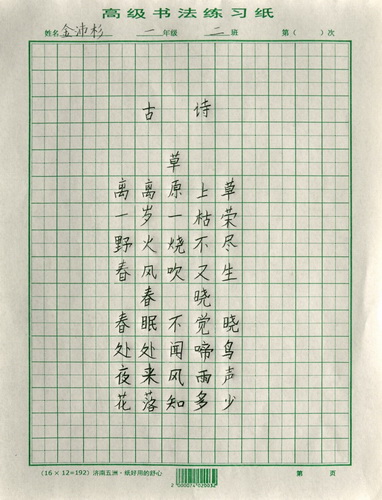 高级书法练习纸
姓名 金沛杉 一 年级 二 班 第( )次
古 诗
草
离 离 原 上 草
一 岁 一 枯 荣
野 火 烧 不 尽
春 风 吹 又 生
春 晓
春 眠 不 觉 晓
处 处 闻 啼 鸟
夜 来 风 雨 声
花 落 知 多 少
(16×12=192) 济南五洲·纸好用的舒心 第 页
2 000074 020032